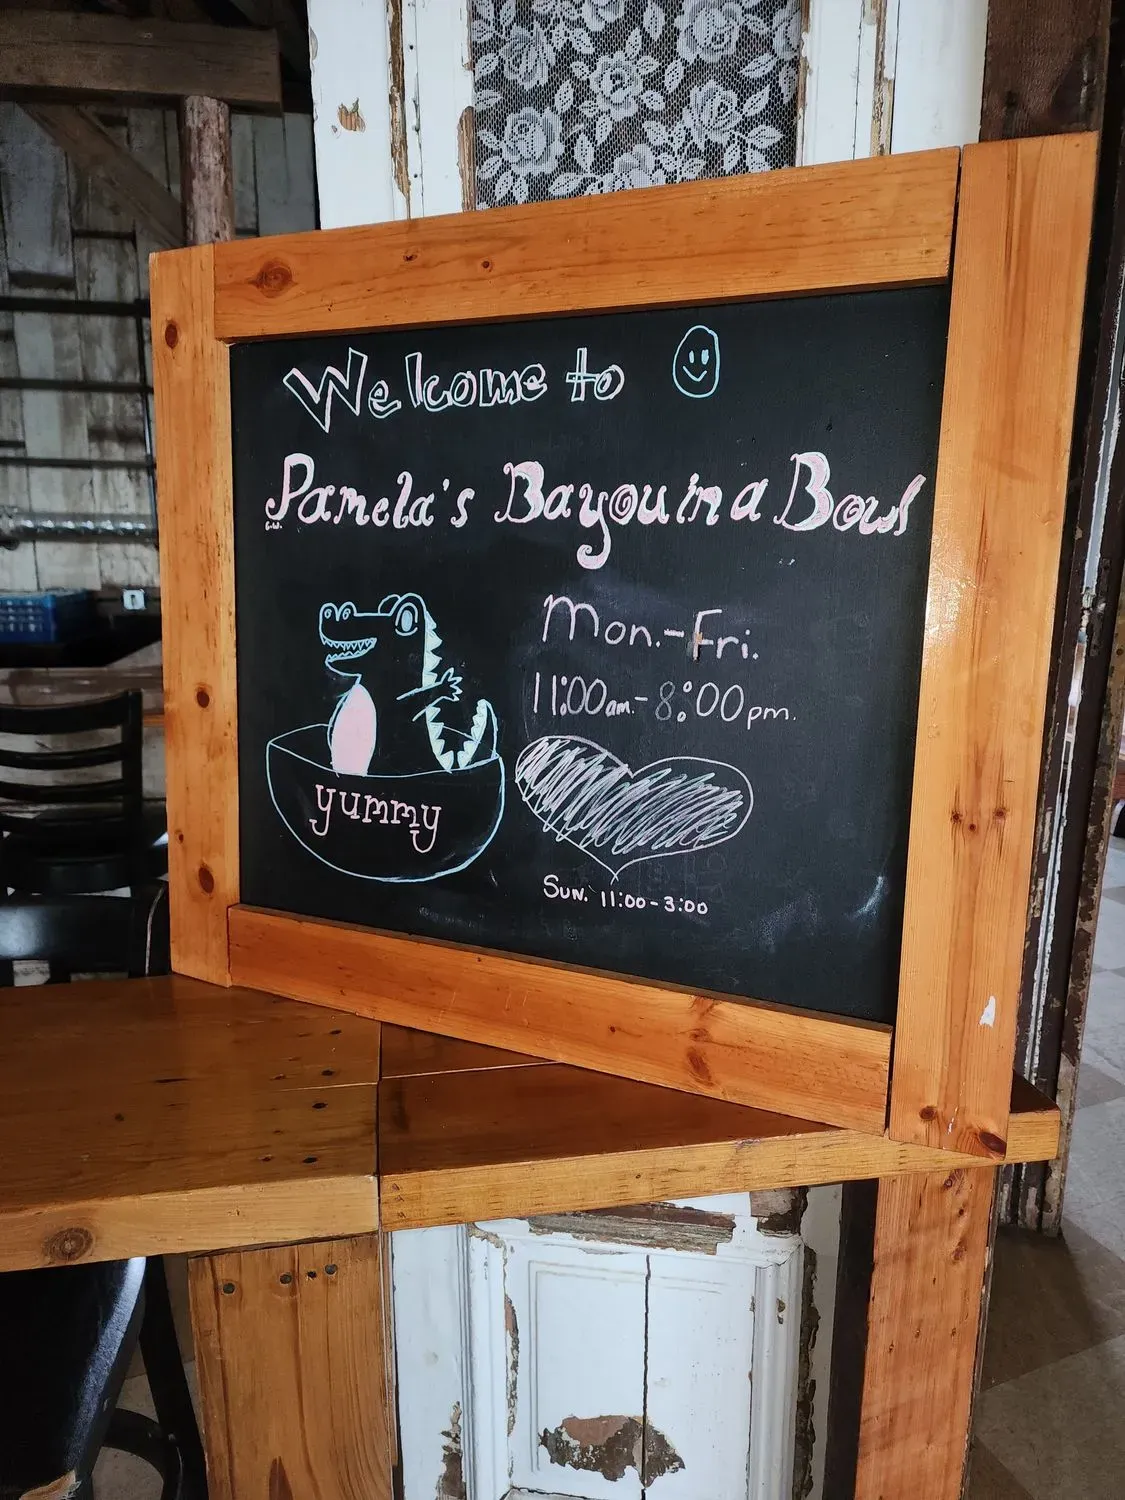 Welcome to
Pamela's Bayou in a Bowl
Mon.-Fri.
11:00am.-8:00pm.
yummy
Sun. 11:00-3:00